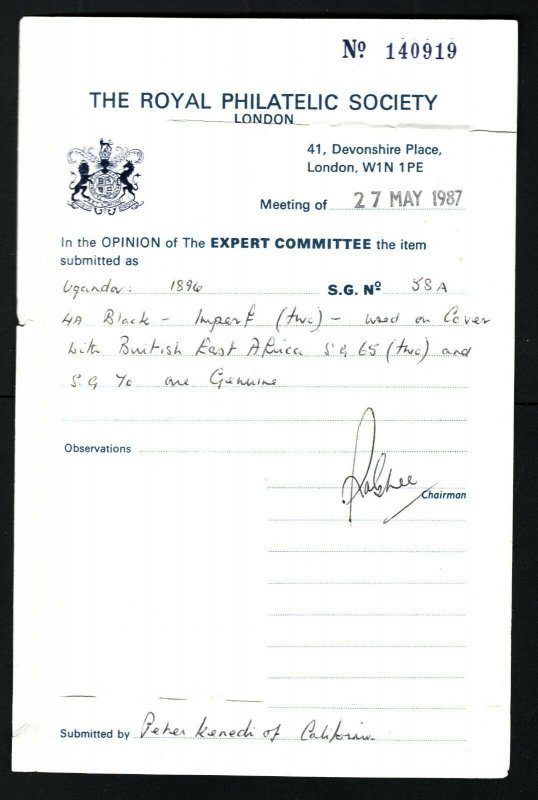 Nº 140919
THE ROYAL PHILATELIC SOCIETY
LONDON
41, Devonshire Place,
London, W1N 1PE
Meeting of 27 MAY 1987
In the OPINION of The EXPERT COMMITTEE the item
submitted as
Uganda: 1896 S.G. Nº 58A
4A Black - Imperf (two) - used on Cover
with British East Africa SG 65 (two) and
S.G 70 are Genuine
Observations
Chairman
Submitted by Peter Kenedi of California